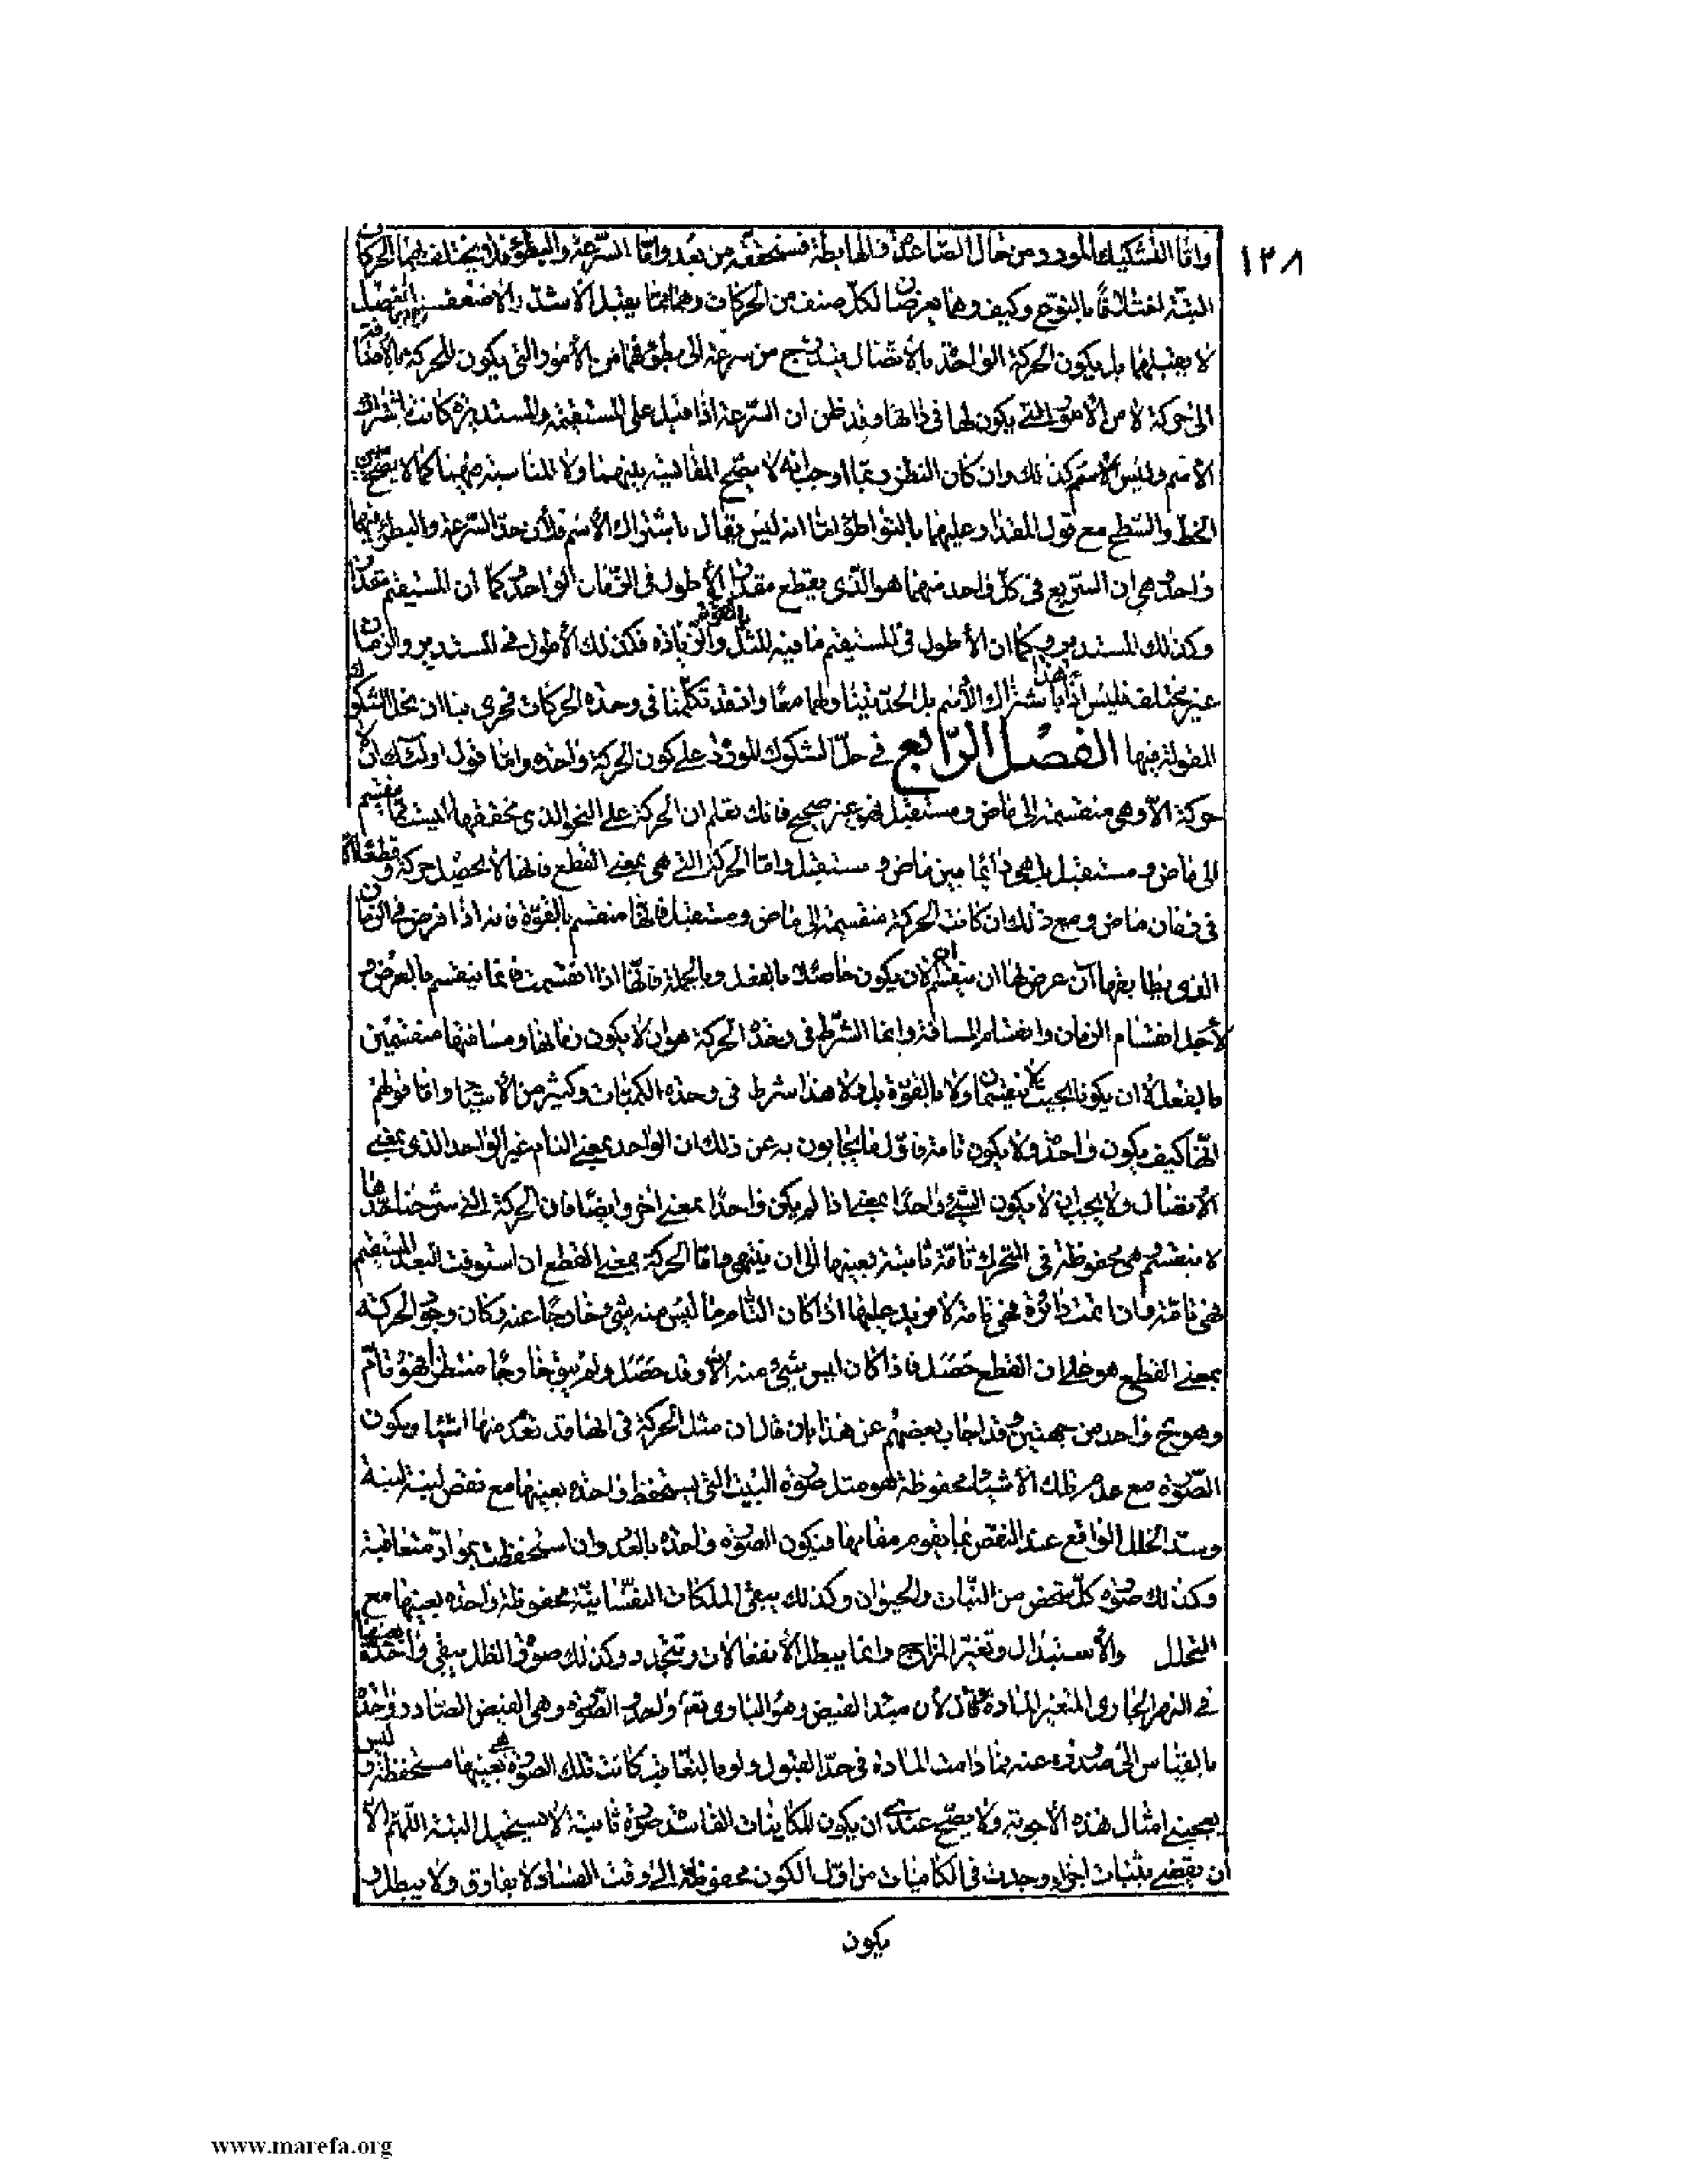 ١٢٨
واما التشكيك المورد من حال الصاعدة والهابطة فسنحققه من بعد واما السرعة والبطوء فلا يختلف بهما الحركات
البتة اختلافا بالنوع وكيف وهما يعرضان لكل صنف من الحركات وهما مما يقبل الاشد والاضعف والفصل
لا يقبلهما بل يكون الحركة الواحدة بالاتصال يتدرج من سرعة الى بطؤ فهما من الامور التي يكون للحركة بالاضافة
الى حركة لا من الامور التي يكون لها في ذاتها وقد ظن ان السرعة اذا قيل على المستقيمة والمستديرة كانت باشتراك
الاسم وليس الامر كذلك وان كان النظر ربما اوجب انه لا يصح المقايسة بينهما ولا المناسبة بينهما كما لا يصح بين
الخط والسطح مع قول المقدار عليهما بالتواطؤ اما انه ليس يقال باشتراك الاسم فلان حد السرعة والبطؤ فيهما
واحد وهي ان السريع في كل واحد منهما هو الذي يقطع مقدارا اطول في الزمان الواحد وكما ان المستقيم مقدار
وكذلك المستدير وكما ان الاطول في المستقيم ما فيه المثل بالقوة والزيادة فكذلك الاطول في المستدير والزمان
غير مختلف فليس اذا هذا باشتراك الاسم بل الحد يتناولهما معا واذ قد تكلمنا في وحدة الحركات فحري بنا ان نحل الشكوك
المقولة فيها الفصل الرابع في حل الشكوك الموردة على كون الحركة واحدة واما قول اولئك ان لا
حركة الا وهي منقسمة الى ماض ومستقبل فهو غير صحيح فانك تعلم ان الحركة على النحو الذي نحققها ليست مما ينقسم
الى ماض ومستقبل بل هي دائما بين ماض ومستقبل واما الحركة التي هي بمعنى القطع فانها لا تحصل حركة وقطعا الا
في زمان ماض ومع ذلك ان كانت الحركة منقسمة الى ماض ومستقبل فانها منقسم بالقوة فانه اذا فرض في الزمان
الذي يطابقها آن عرض لها ان ينقسم لا ان يكون حاصلا بالفعل وبالجملة فانها اذا انقسمت فانما ينقسم بالعرض و
لاجل انقسام الزمان وانقسام المسافة وانما الشرط في وحدة الحركة هو ان لا يكون زمانها ومسافتها منقسمتين
بالفعل لا ان يكونا بحيث لا ينقسمان ولا بالقوة بل ولا هذا شرط في وحدة الكميات وكثير من الاشياء واما قولهم
انها كيف يكون واحدة ولا يكون تامة فاول ما يجابون به عن ذلك ان الواحد بمعنى التام غير الواحد الذي بمعنى
الاتصال ولا يجب ان لا يكون الشيء واحدا بمعنى اذا لم يكن واحدا بمعنى آخر وايضا فان الحركة التي شرحناها
لا ينقسم هي محفوظة في المتحرك تامة ثابتة بعينها الى ان ينتهي واما الحركة بمعنى القطع ان استوفت البعد المستقيم
فهي تامة وان اتمت دائرة فهي تامة لا مزيد عليها اذا كان التام ما ليس منه شيء خارجا عنه وكان وجود الحركة
بمعنى القطع هو على ان القطع حصل فاذا كان ليس شيء منه الا وقد حصل ولم يبق خارجا منتظرا فهو تام
وهو واحد من جهتين وقد اجاب بعضهم عن هذا بان قال ان مثل الحركة في انها قد تعدم منها اشياء ويكون
الصورة مع عدم تلك الاشياء محفوظة هو مثل صورة البيت التي يستحفظ واحدة بعينها مع نقض لبنة لبنة
وسد الخلل الواقع عند النقض بما يقوم مقامها فيكون الصورة واحدة بالعدد وان استحفظت بمواد متعاقبة
وكذلك صورة كل شخص من النبات والحيوان وكذلك يبقى الملكات النفسانية محفوظة واحدة بعينها مع
التحلل والاستبدال وتغير المزاج وانما يبطل الانفعالات وتتجدد وكذلك صورة الظل يبقى واحدة بعينها
في النهر الجاري المتغير المادة قال لان مبدأ الفيض وهو الباري تعم واحد والصورة وهي الفيض الصادر واحدة
بالقياس الى صدوره عنه فما دامت المادة في حد القبول ولو بالتعاقب كانت تلك الصورة هي بعينها مستحفظة وليس
يعجبني امثال هذه الاجوبة ولا يصح عندي ان يكون للكاينات الفاسدة صورة ثابتة لا يستحيل البتة اللهم الا
ان يقضى بثبات اجزاء وجدت في الكاينات من اول الكون محفوظة الى وقت الفساد لا يفارق ولا يبطل و
يكون
www.marefa.org